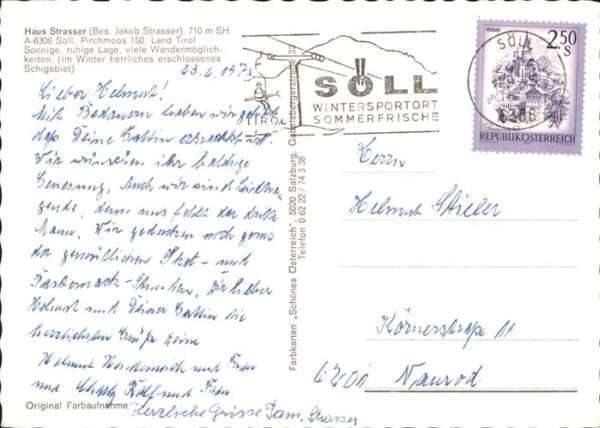 Haus Strasser (Bes. Jakob Strasser), 710 m SH
A-6306 Söll, Pirchmoos 150, Land Tirol
Sonnige, ruhige Lage, viele Wandermöglich-
keiten. (Im Winter herrliches erschlossenes
Schigebiet)
23.6.1975
Lieber Helmut!
Mit Bedauern haben wir gehört
daß Deine Gattin erkrankt ist.
Wir wünschen ihr baldige
Genesung. Auch wir sind
denn uns fehlt der dritte
Mann. Wir gedenken noch gerne
der gemütlichen Skat- und
Dir lieber
Helmut und Deiner Gattin die
herzlichsten Grüße Deine
Helmut und Frau
und Rolf und Frau
Herzliche Grüsse Fam. Strasser
Original Farbaufnahme
Farbkarten „Schönes Österreich", 5020 Salzburg,
Telefon 0 62 22 / 74 3 38
TIROL
SÖLL
WINTERSPORTORT
SOMMERFRISCHE
SÖLL
6306
2.50 S
REPUBLIK ÖSTERREICH
Herrn
Helmut Stieler
Körnerstraße 11
6201 Naurod